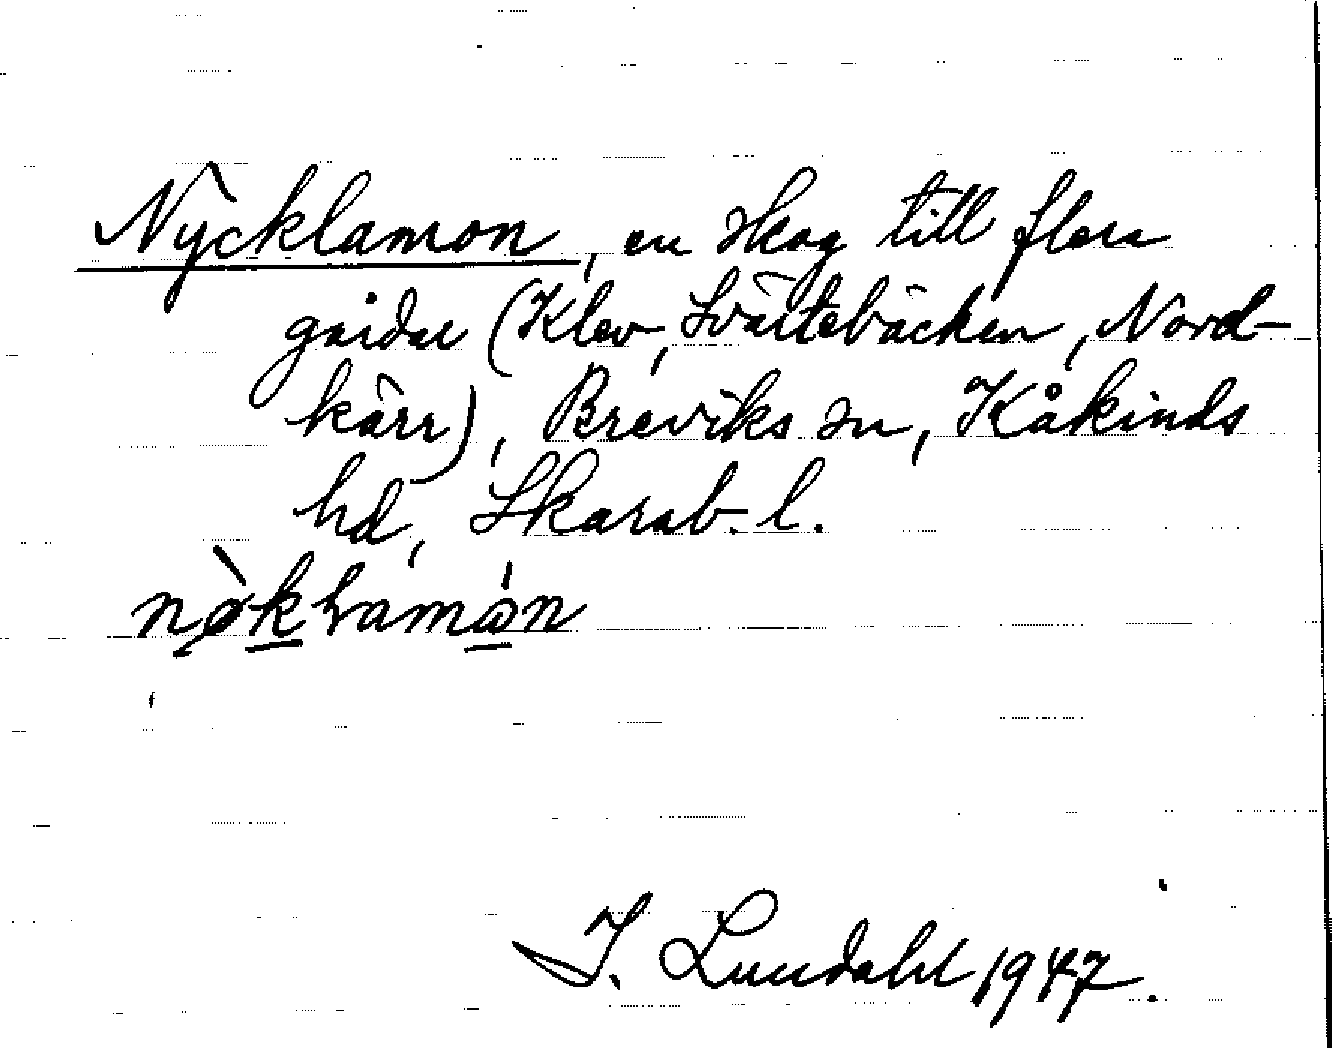 Nycklamon, en skog till flera
gårdar (Klev, Svärtebäcken, Nord-
kärr), Breviks sn, Kåkinds
hd, Skarab. l.
nø̀klamòn
I. Lundahl 1947.